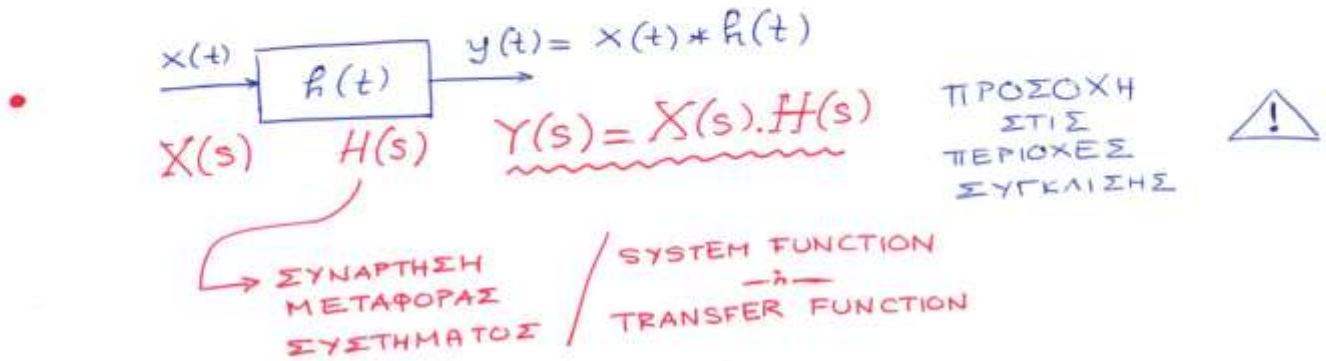 x(t)
h(t)
y(t) = x(t) * h(t)
X(s)
H(s)
Y(s) = X(s).H(s)
ΠΡΟΣΟΧΗ
ΣΤΙΣ
ΠΕΡΙΟΧΕΣ
ΣΥΓΚΛΙΣΗΣ
!
ΣΥΝΑΡΤΗΣΗ
ΜΕΤΑΦΟΡΑΣ
ΣΥΣΤΗΜΑΤΟΣ
/
SYSTEM FUNCTION
—ή—
TRANSFER FUNCTION